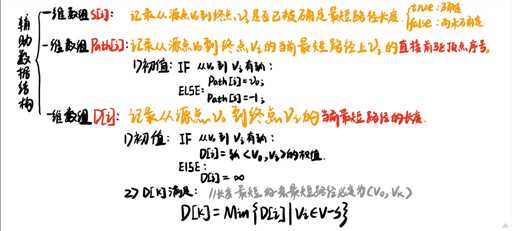 辅助数据结构
一维数组S[i]: 记录从源点v₀到终点vᵢ是否已被确定最短路径长度. true:确定
false:尚未确定
一维数组Path[i]: 记录从源点v₀到终点vᵢ的当前最短路径上vᵢ的直接前驱顶点序号.
1)初值: IF 从v₀到vᵢ有弧:
Path[i]=v₀;
ELSE:
Path[i]=-1;
一维数组D[i]: 记录从源点v₀到终点vᵢ的当前最短路径的长度.
1)初值: IF 从v₀到vᵢ有弧:
D[i]=弧<v₀,vᵢ>的权值.
ELSE:
D[i]=∞
2) D[k]满足: //长度最短的一条最短路径必定为(v₀,vₖ)
D[k]=Min{D[i]|vᵢ∈V-S}